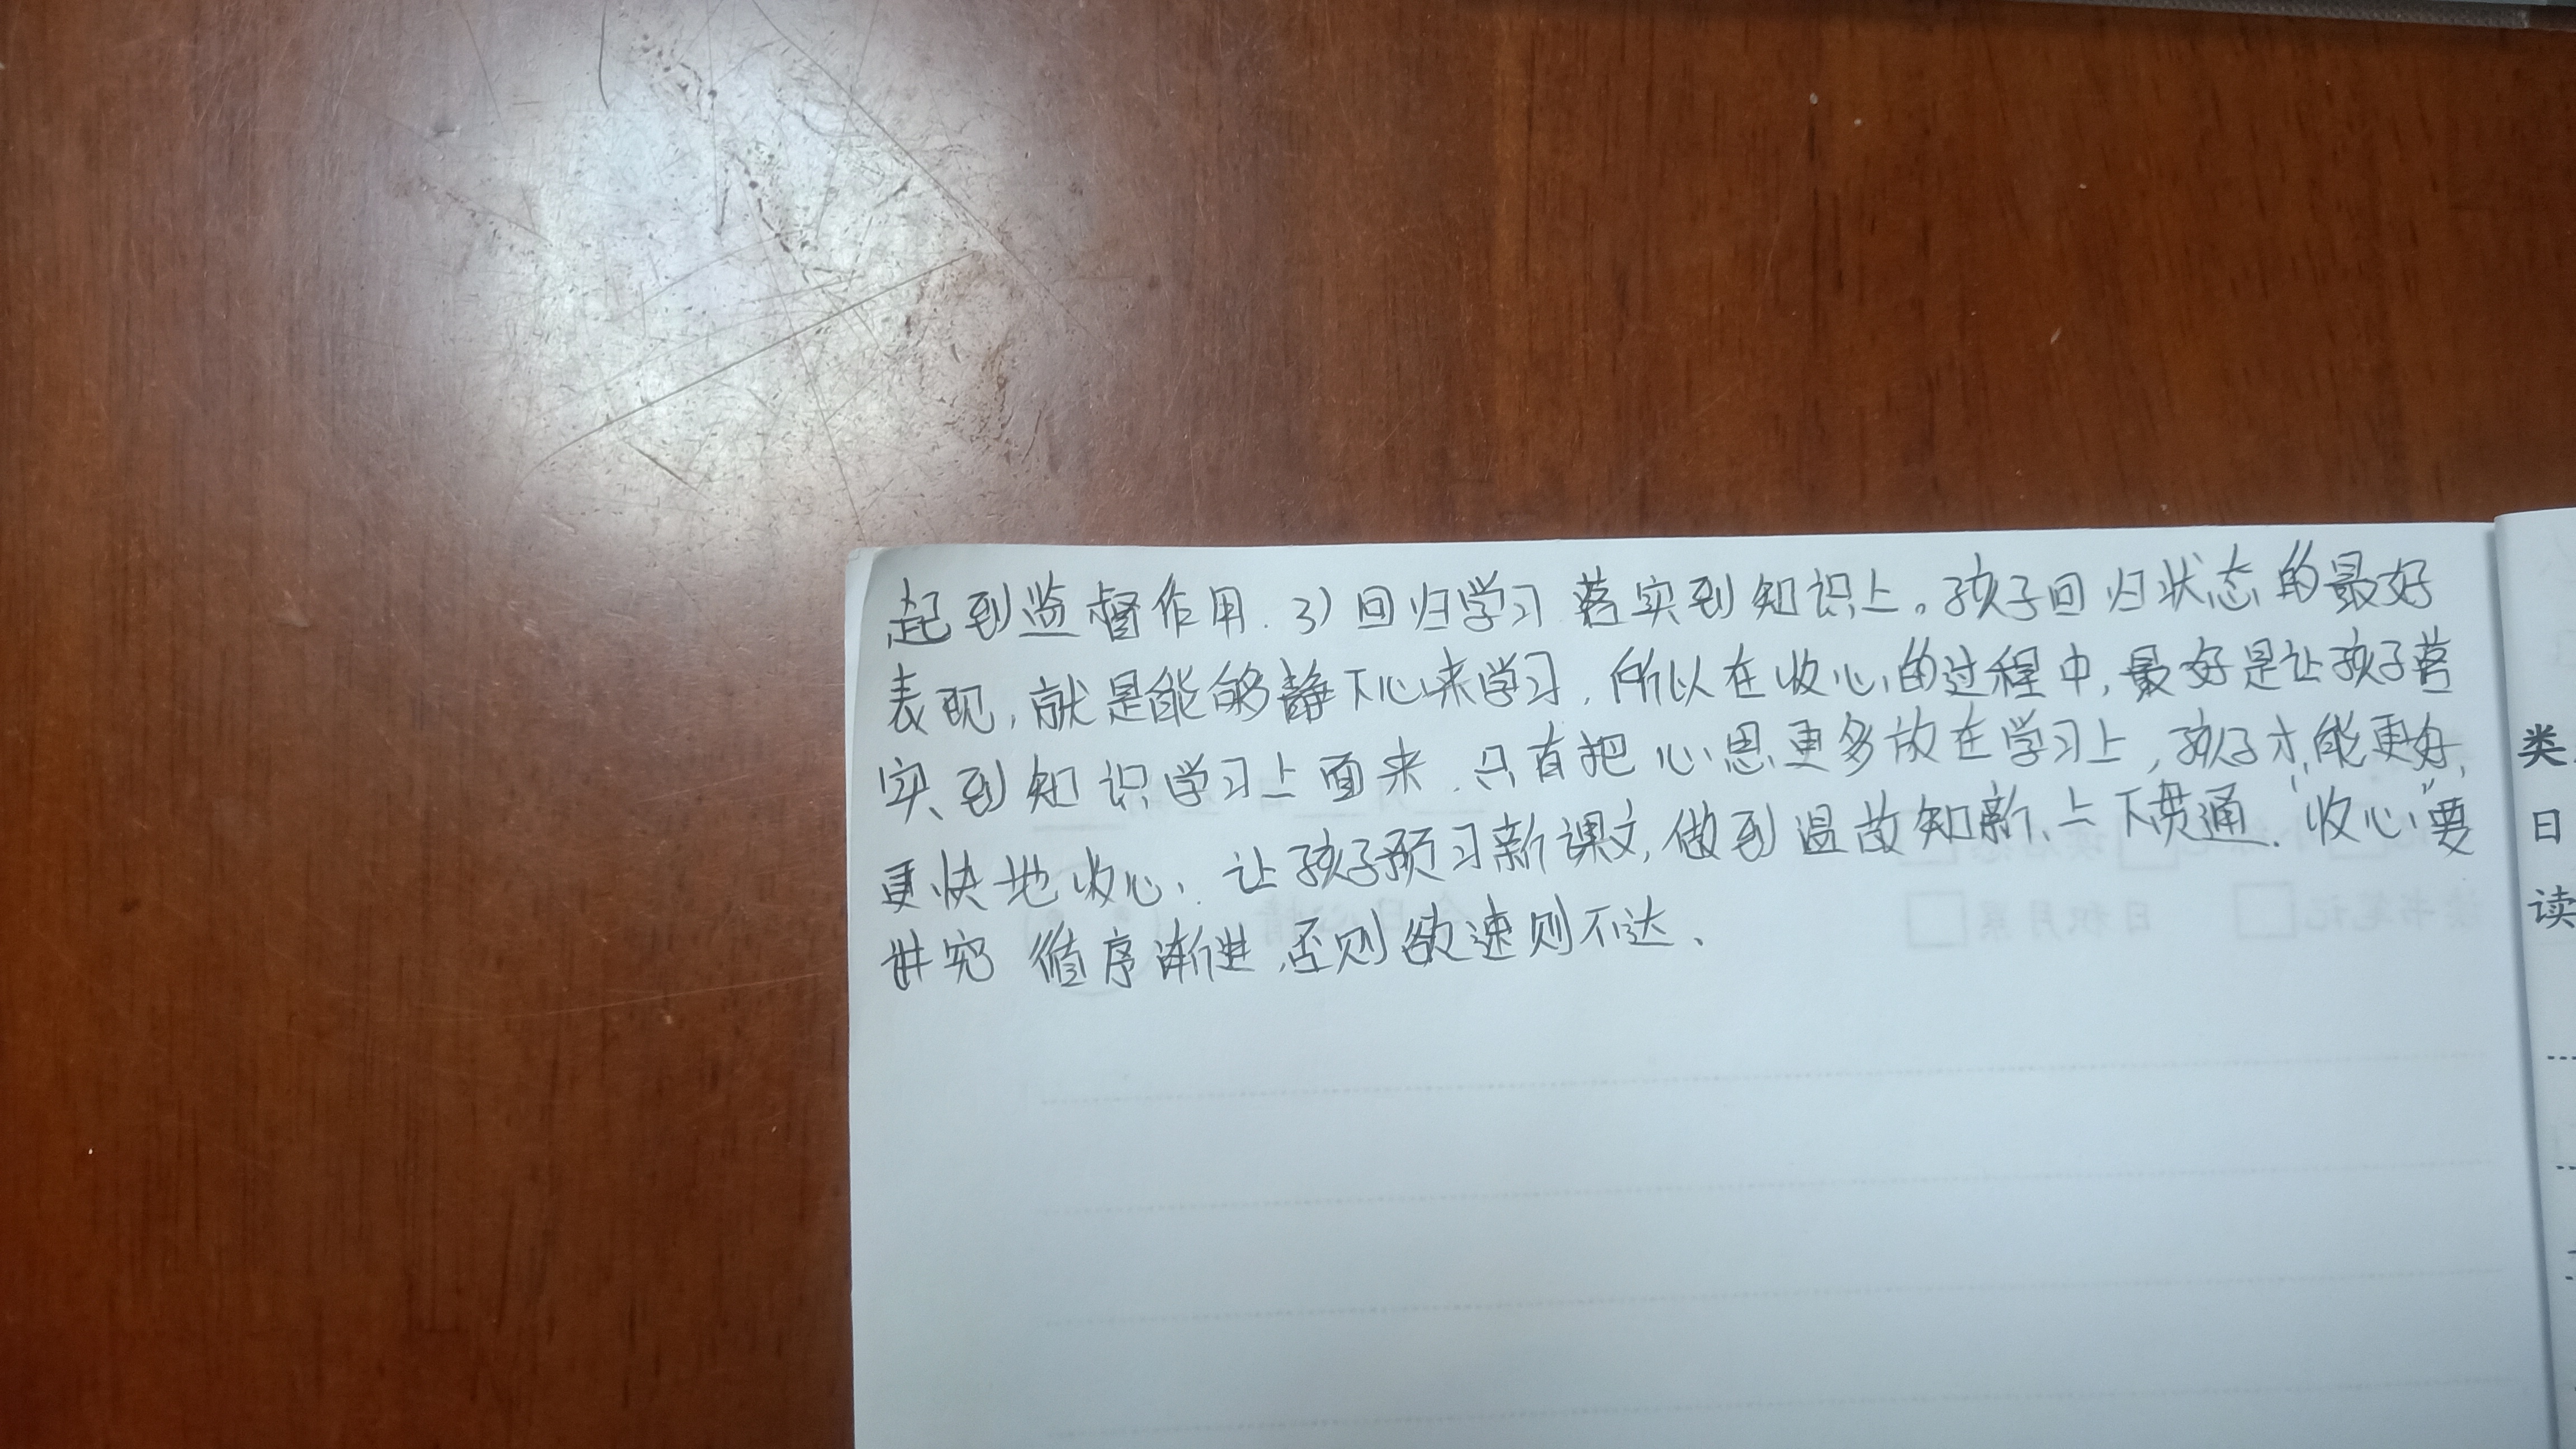 起到监督作用. 3) 回归学习 落实到知识上。孩子回归状态的最好
表现, 就是能够静下心来学习, 所以在收心的过程中, 最好是让孩子落
实到知识学习上面来. 只有把心思更多放在学习上, 孩子才能更好,
更快地收心. 让孩子预习新课文, 做到温故知新、上下贯通. “收心”要
讲究 循序渐进, 否则欲速则不达、
类
日
读